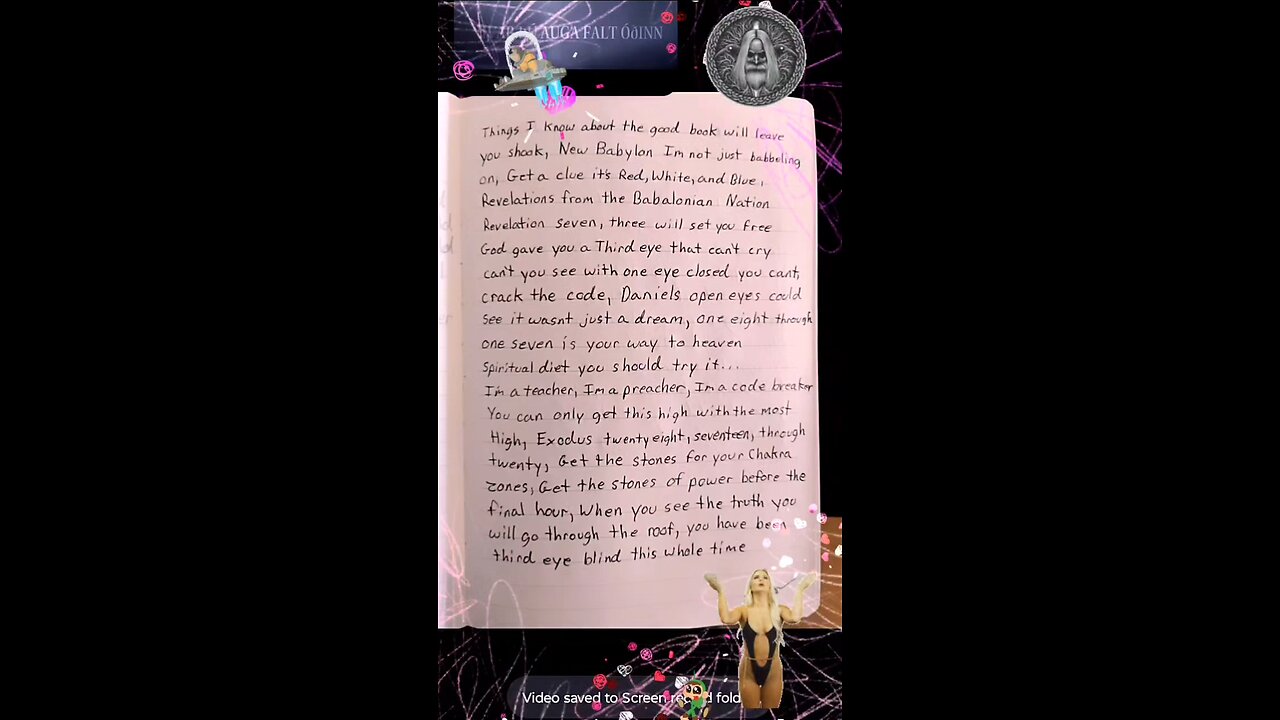 AUGA FALT ÓÐINN
Things I know about the good book will leave
you shook, New Babylon Im not just babbeling
on, Get a clue it's Red, White, and Blue,
Revelations from the Babalonian Nation
Revelation seven, three will set you free
God gave you a Third eye that can't cry
can't you see with one eye closed you cant,
crack the code, Daniels open eyes could
see it wasnt just a dream, one eight through
one seven is your way to heaven
Spiritual diet you should try it...
I'm a teacher, I'm a preacher, I'm a code breaker
You can only get this high with the most
High, Exodus twenty eight, seventeen, through
twenty, Get the stones for your Chakra
zones, Get the stones of power before the
final hour, When you see the truth you
will go through the roof, you have been
third eye blind this whole time
Video saved to Screen fold